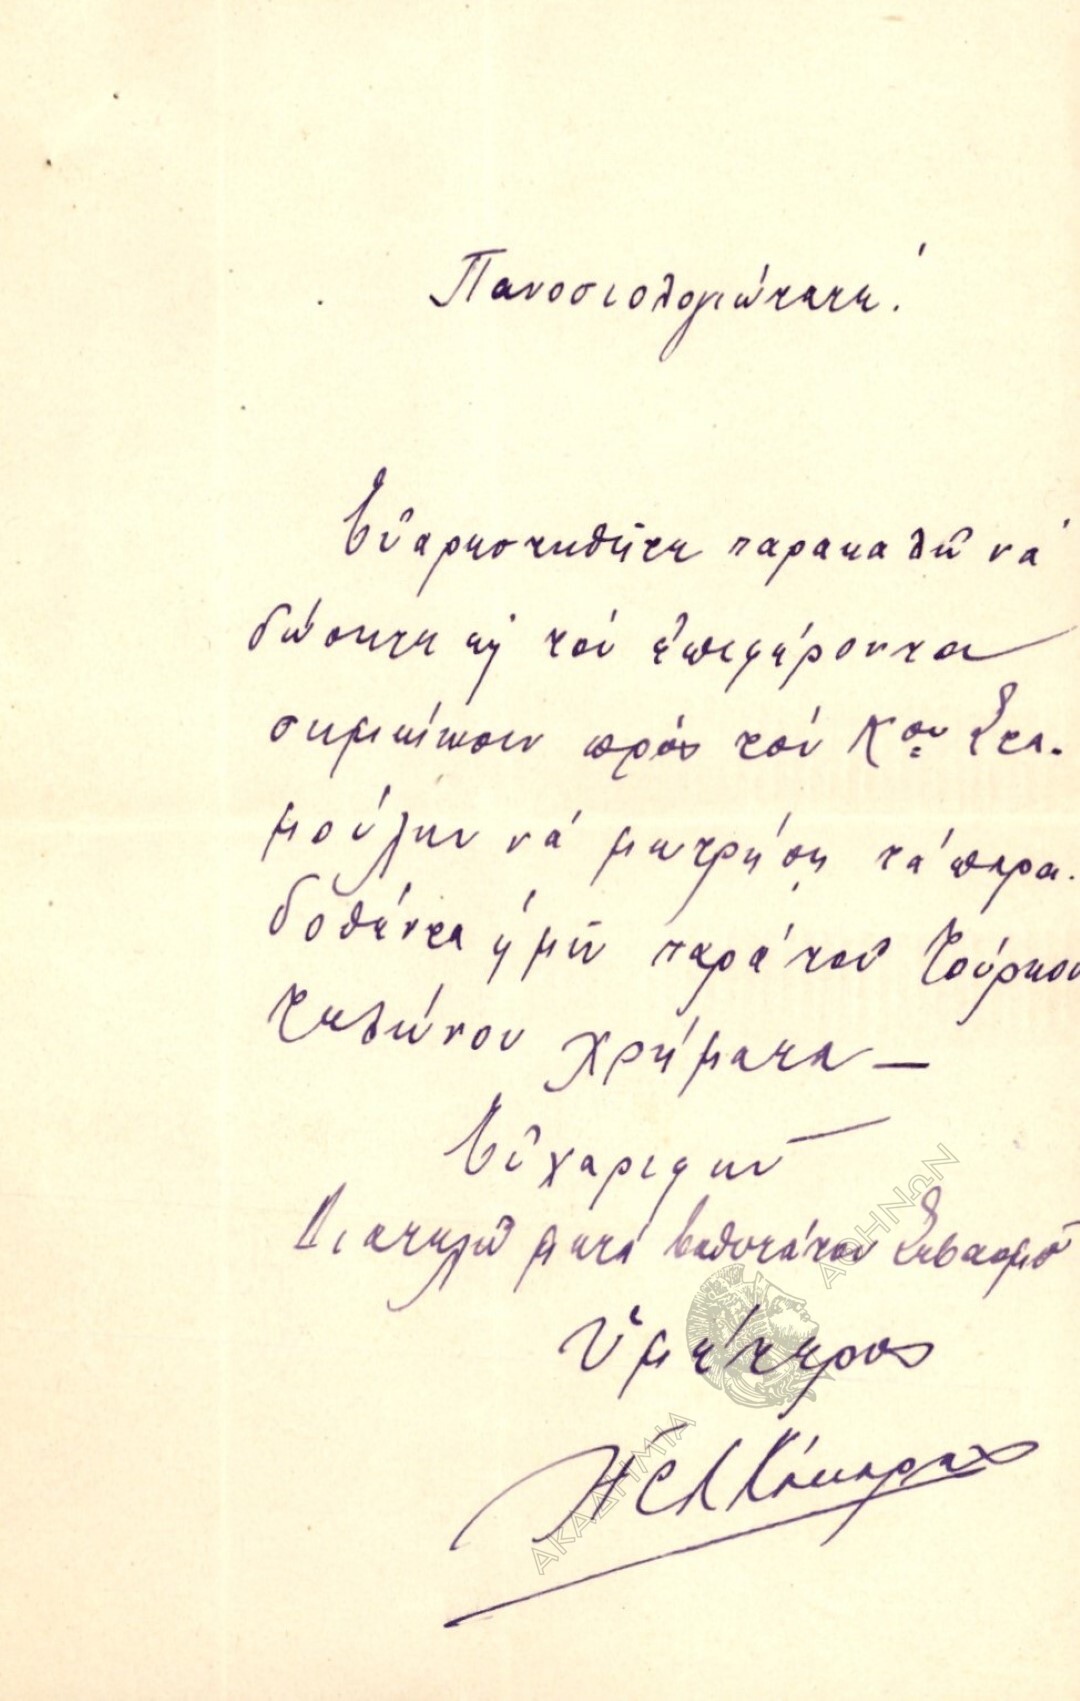 Πανοσιολογιώτατε!
Εὐαρεστηθῆτε παρακαλῶ νά
δώσητε εἰς τόν ἐπιφέροντα
σημείωσιν πρός τόν Κον Στα-
μούλην νά μετρήση τά παρα-
δοθέντα ἡμῖν παρά τοῦ Τούρκου
τελώνου χρήματα —
Εὐχαριστῶν
Διατελῶ μετά βαθυτάτου Σεβασμοῦ
Ὑμέτερος
ΑΚΑΔΗΜΙΑ ΑΘΗΝΩΝ